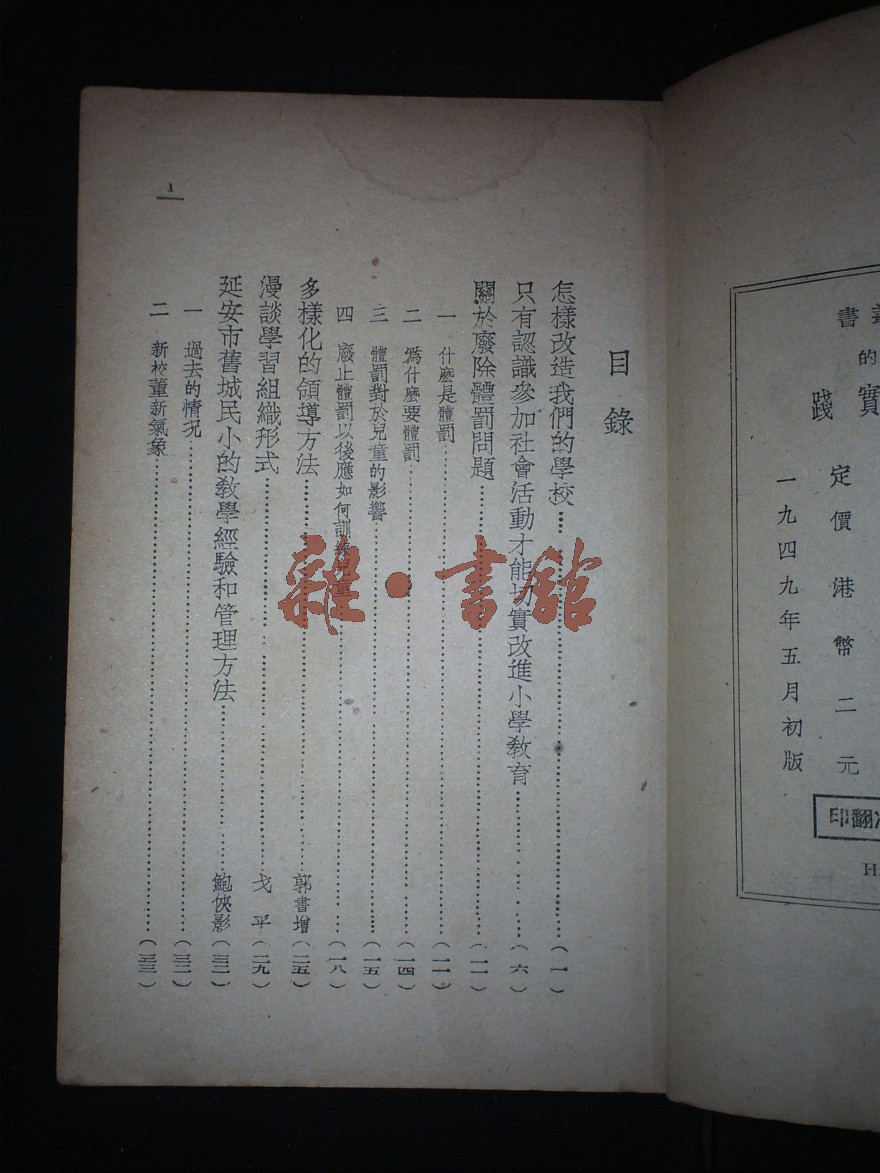 書
的
實
踐
定價港幣二元
一九四九年五月初版
印翻
H
目錄
怎樣改造我們的學校……(一)
只有認識參加社會活動才能切實改進小學教育……(六)
關於廢除體罰問題……(一一)
一 什麼是體罰……(一一)
二 爲什麼要體罰……(一四)
三 體罰對於兒童的影響……(一五)
四 廢止體罰以後應如何訓練兒童……(一八)
多樣化的領導方法……郭書增(二五)
漫談學習組織形式……戈 平(二九)
延安市舊城民小的教學經驗和管理方法……鮑俠影(三二)
一 過去的情况……(三二)
二 新校董新氣象……(三三)
1
雜·書館